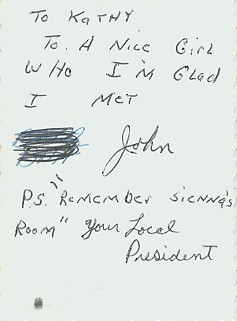 To KATHY
To. A Nice Girl
WHo I'M Glad
I MET
John
P.S. "Remember sienna's
Room" your Local
President